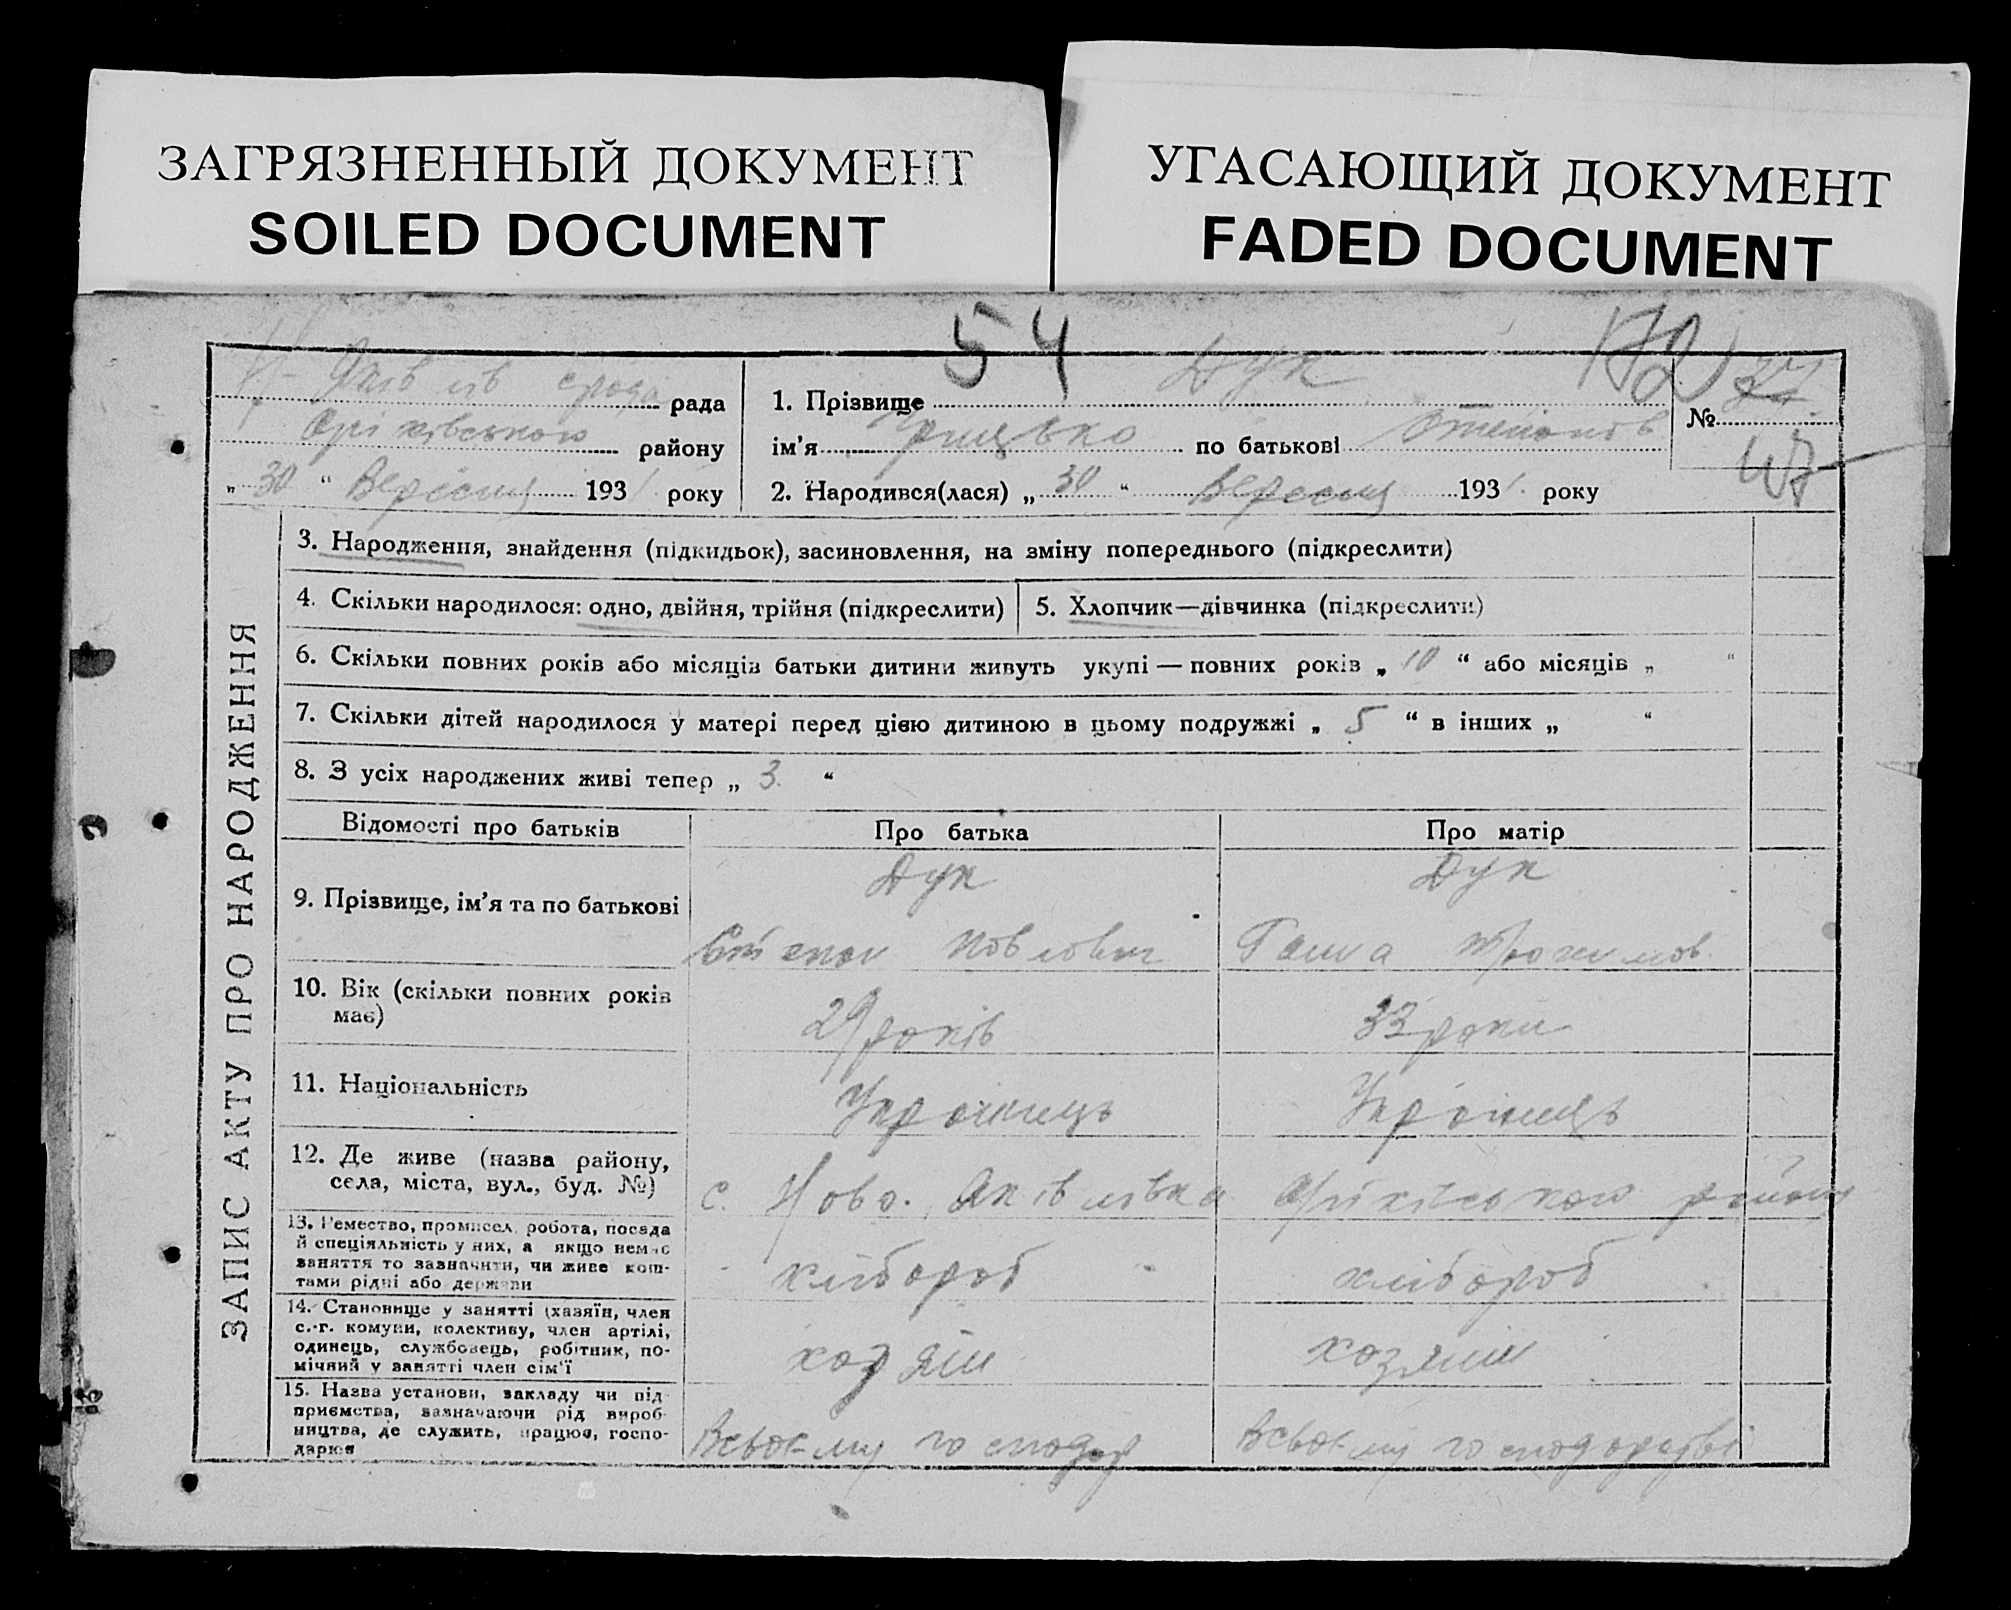 ЗАГРЯЗНЕННЫЙ ДОКУМЕНТ
SOILED DOCUMENT
УГАСАЮЩИЙ ДОКУМЕНТ
FADED DOCUMENT
54
172
Н-Яків лів рада
Оріхівського району
„30“ Вересня 1931 року
1. Прізвище Дук
ім’я Грицько по батькові Степанов
2. Народився(лася) „30“ Вересня 1931. року
№ 27
47
ЗАПИС АКТУ ПРО НАРОДЖЕННЯ
3. Народження, знайдення (підкидьок), засиновлення, на зміну попереднього (підкреслити)
4. Скільки народилося: одно, двійня, трійня (підкреслити)
5. Хлопчик—дівчинка (підкреслити)
6. Скільки повних років або місяців батьки дитини живуть укупі — повних років „ 10 “ або місяців „ “
7. Скільки дітей народилося у матері перед цією дитиною в цьому подружжі „ 5 “ в інших „ “
8. З усіх народжених живі тепер „ 3 “
Відомості про батьків
Про батька
Про матір
9. Прізвище, ім’я та по батькові
Дук
Степан Павлович
Дук
Ганна Трохимов.
10. Вік (скільки повних років
має)
29 років
33 роки
11. Національність
Українець
Українець
12. Де живе (назва району,
села, міста, вул., буд. №)
с. Ново. Яківлівка Оріхівського району
13. Ремество, промисел, робота, посада
й спеціяльність у них, а якщо немає
заняття то зазначити, чи живе кош-
тами рідні або держави
хлібороб
хлібороб
14. Становище у занятті (хазяїн, член
с.-г. комуни, колективу, член артілі,
одинець, службовець, робітник, по-
мічний у занятті член сім’ї
хозяїн
хозяїн
15. Назва установи, закладу чи під-
приємства, зазначаючи рід вироб-
ництва, де служить, працює, госпо-
дарює
Всвоєму господар
Всвоєму господарстві